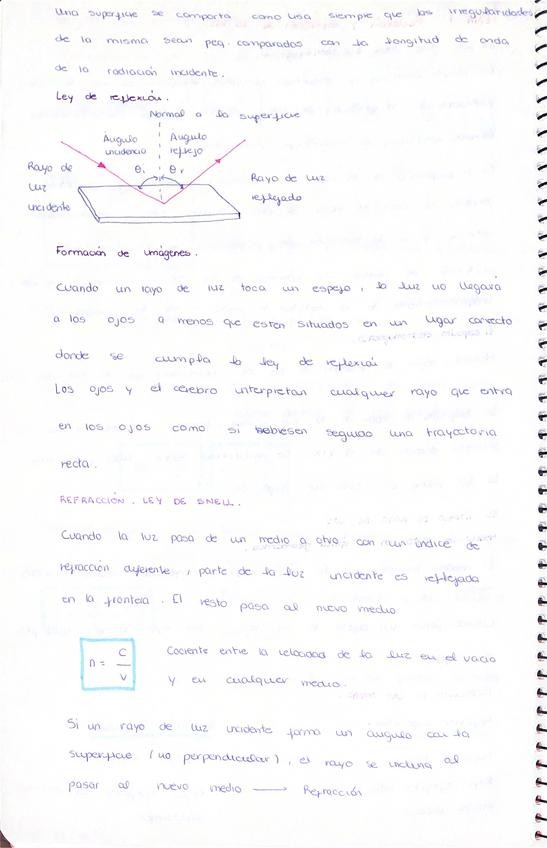 Una superficie se comporta como lisa siempre que las irregularidades
de la misma sean peq. comparados con la longitud de onda
de la radiación incidente.
Ley de reflexión.
Normal a la superficie
Ángulo incidencia
Ángulo reflejo
Rayo de luz incidente
θi
θr
Rayo de luz reflejado
Formación de imágenes.
Cuando un rayo de luz toca un espejo, la luz no llegará
a los ojos a menos que esten situados en un lugar correcto
donde se cumpla la ley de reflexión
Los ojos y el cerebro interpretan cualquier rayo que entra
en los ojos como si hubiesen seguido una trayectoria
recta.
REFRACCIÓN. LEY DE SNELL.
Cuando la luz pasa de un medio a otro con un índice de
refracción diferente, parte de la luz incidente es reflejada
en la frontera. El resto pasa al nuevo medio
n = C / V
Cociente entre la velocidad de la luz en el vacío
y en cualquier medio.
Si un rayo de luz incidente forma un ángulo con la
superficie (no perpendicular), el rayo se inclina al
pasar al nuevo medio → Refracción